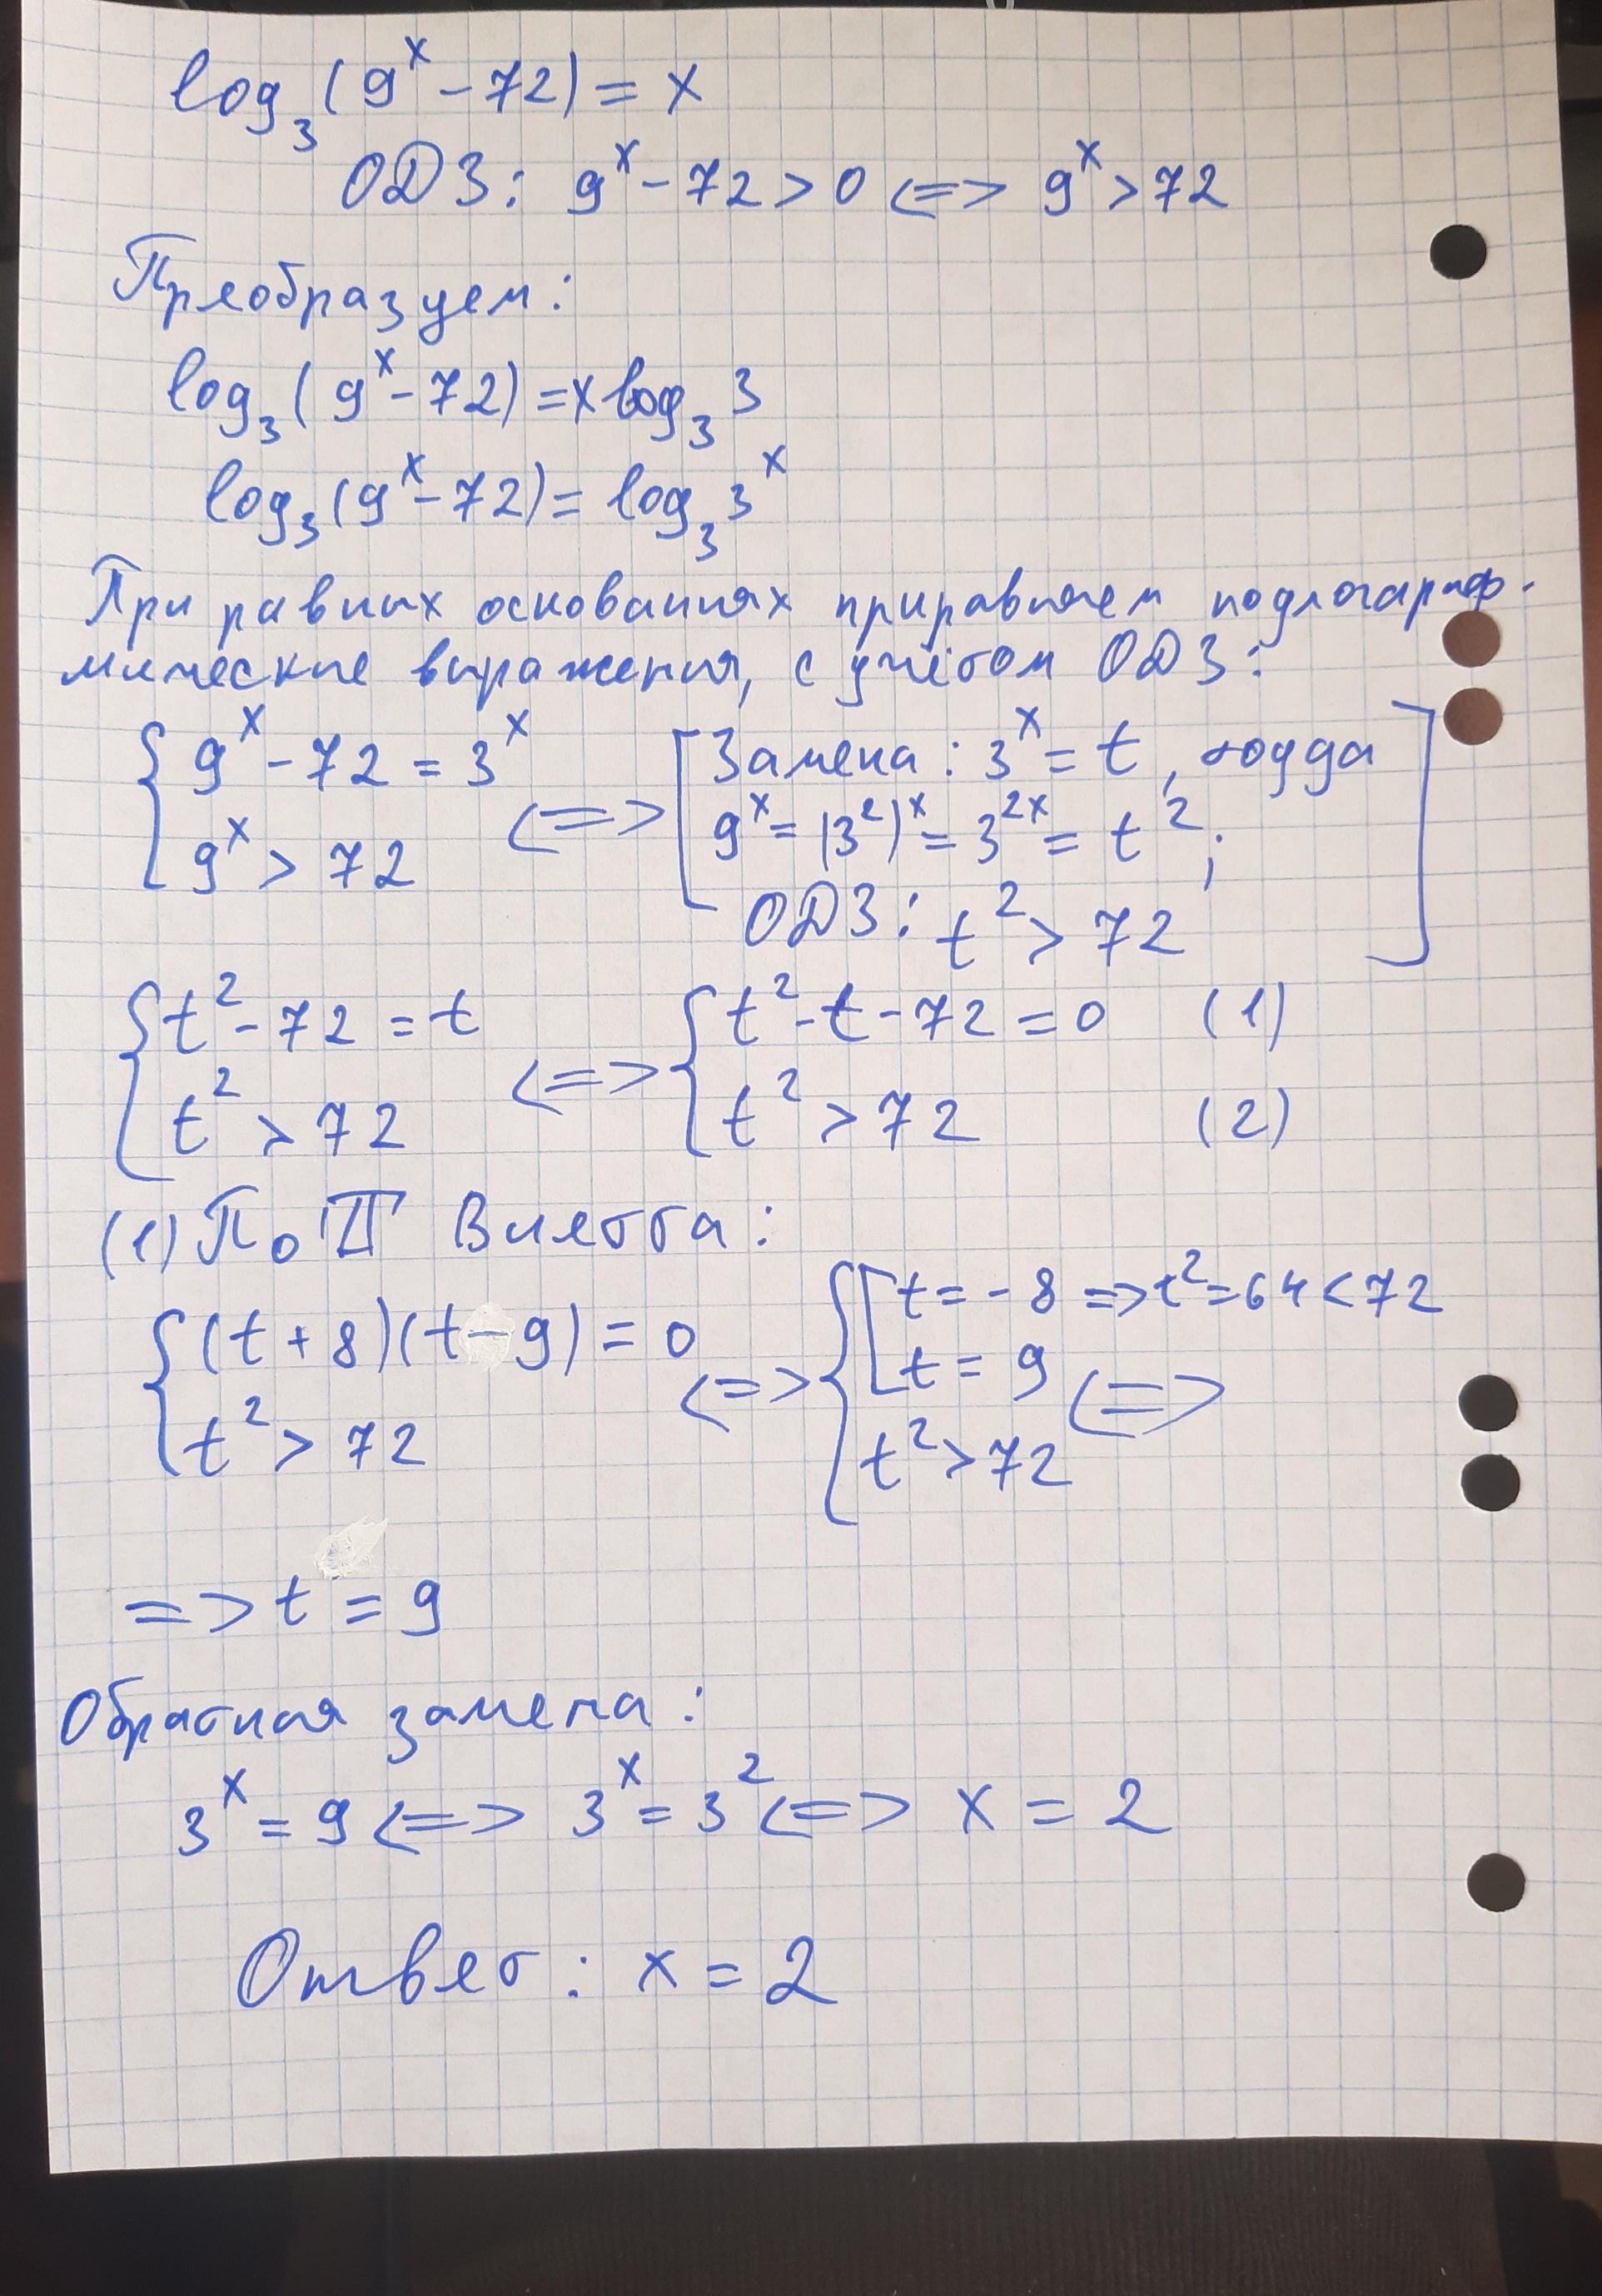 log₃(9ˣ-72)=x
ОДЗ: 9ˣ-72>0 <=> 9ˣ>72
Преобразуем:
log₃(9ˣ-72)=x log₃3
log₃(9ˣ-72)=log₃3ˣ
При равных основаниях приравняем подлогариф-
мические выражения, с учётом ОДЗ:
{ 9ˣ-72=3ˣ <=> [Замена: 3ˣ=t, тогда
9ˣ=(3²)ˣ=3²ˣ=t²;
9ˣ>72
ОДЗ: t²>72]
{ t²-72=t <=> { t²-t-72=0 (1)
t²>72 t²>72 (2)
(1) По Т Виетта:
{ (t+8)(t-9)=0 <=> { [ t=-8 => t²=64<72
t=9 <=>
t²>72 t²>72
=> t=9
Обратная замена:
3ˣ=9 <=> 3ˣ=3² <=> x=2
Ответ: x=2